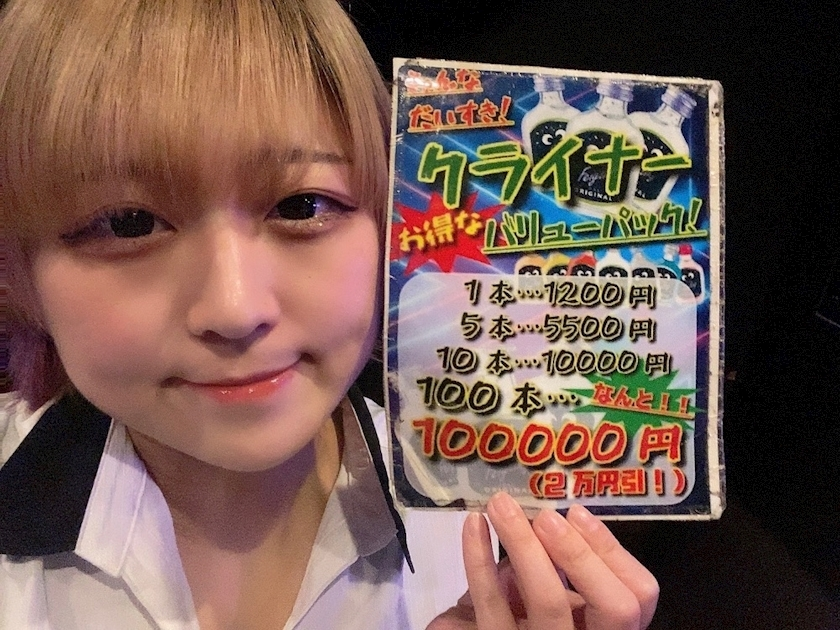 みんな
だいすき!
クライナー
お得な
バリューパック!
1本…1200円
5本…5500円
10本…10000円
100本… なんと!!
100000円
(2万円引!)